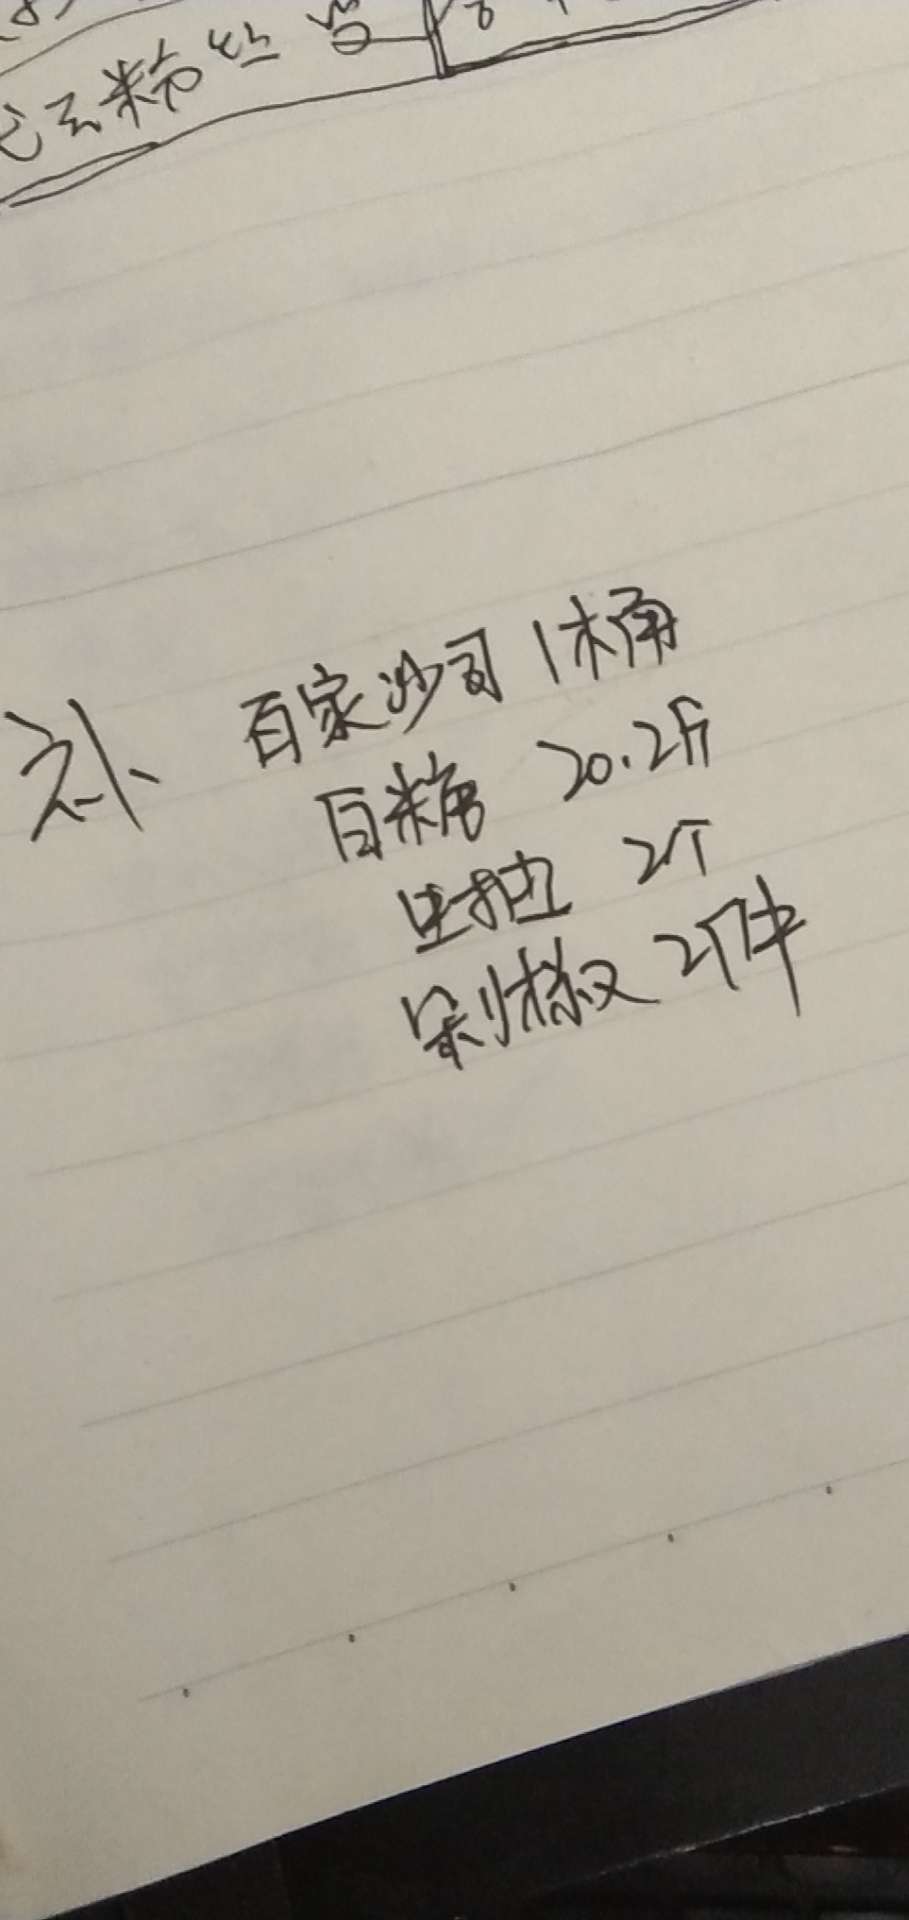 粉丝
补 百家沙司 1桶
白糖 20.2斤
生抽 2个
剁椒 2件